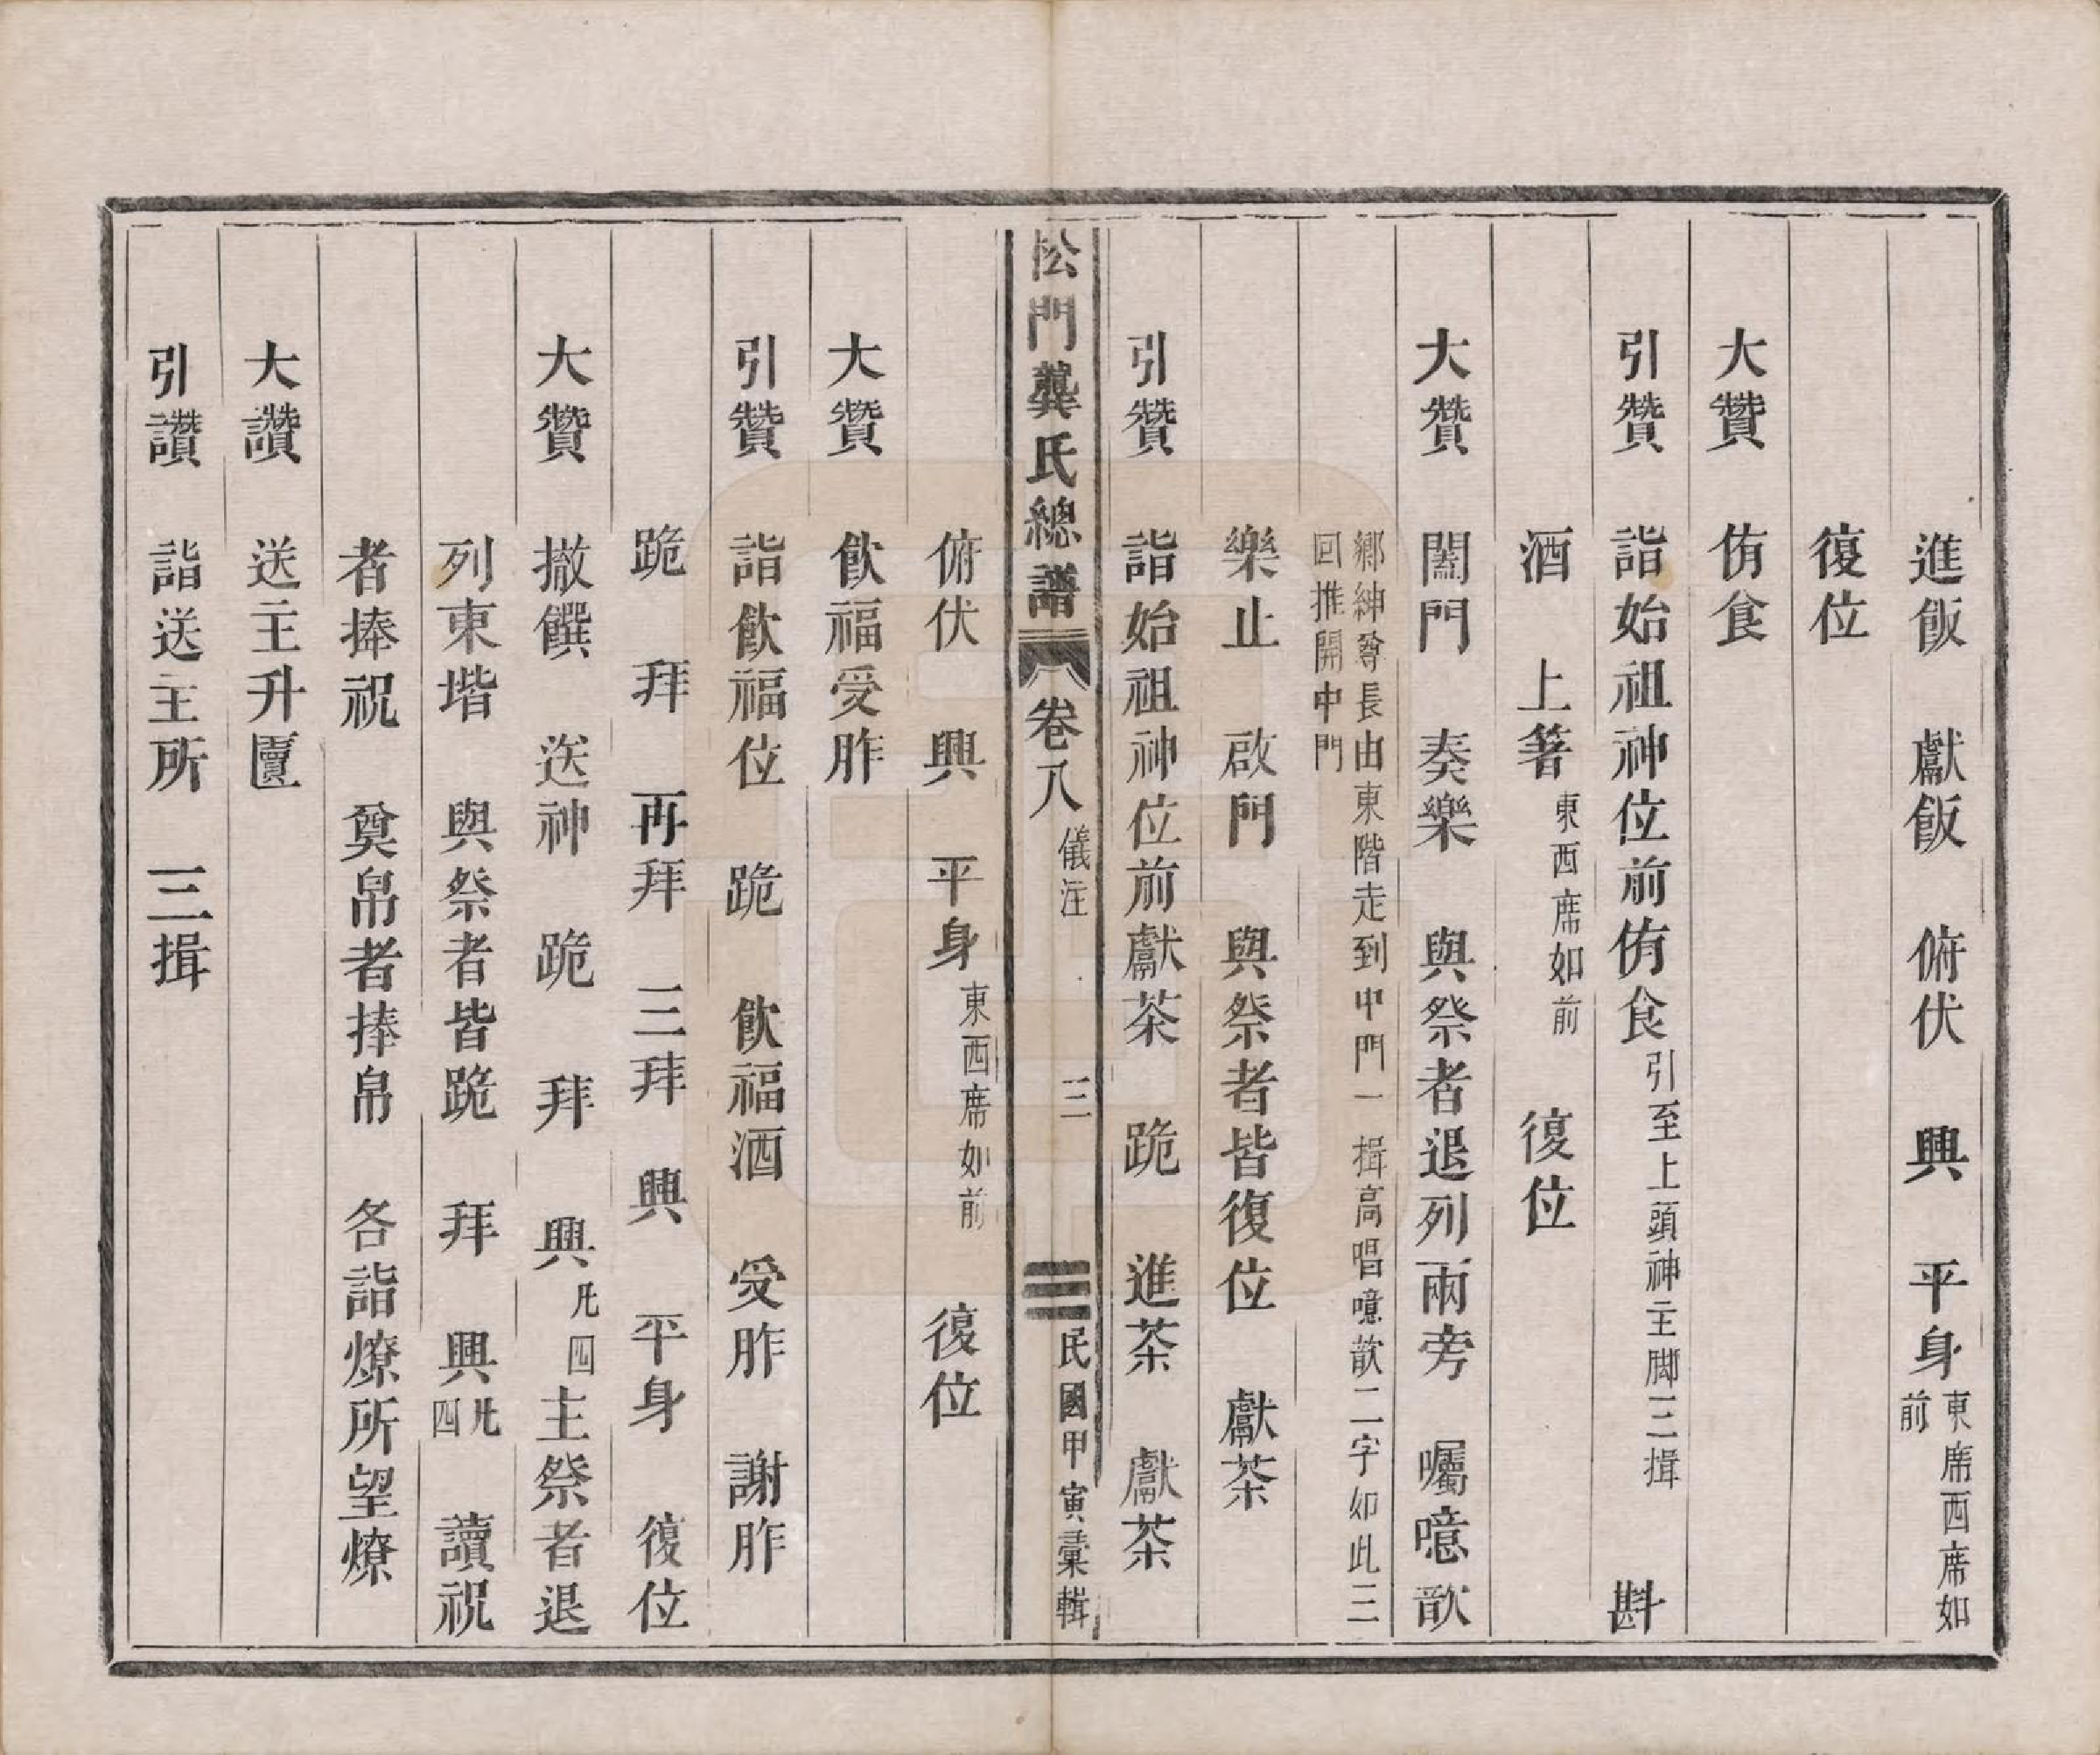 進飯　獻飯　俯伏　興　平身東席西席如前
復位
大贊　侑食
引贊　詣始祖神位前侑食引至上頭神主脚三揖　斟
酒　上箸東西席如前　復位
大贊　闔門　奏樂　與祭者退列兩旁　囑噫歆
鄉紳尊長由東階走到中門一揖高唱噫歆二字如此三
回推開中門
樂止　啟門　與祭者皆復位　獻茶
引贊　詣始祖神位前獻茶　跪　進茶　獻茶
松門龔氏總譜　卷八　儀注　三　民國甲寅彙輯
俯伏　興　平身東西席如前　復位
大贊　飲福受胙
引贊　詣飲福位　跪　飲福酒　受胙　謝胙
跪　拜　再拜　三拜　興　平身　復位
大贊　撤饌　送神　跪　拜　興凡四主祭者退
列東堦　與祭者皆跪　拜　興凡四　讀祝
者捧祝　奠帛者捧帛　各詣燎所望燎
大讚　送主升匱
引讚　詣送主所　三揖